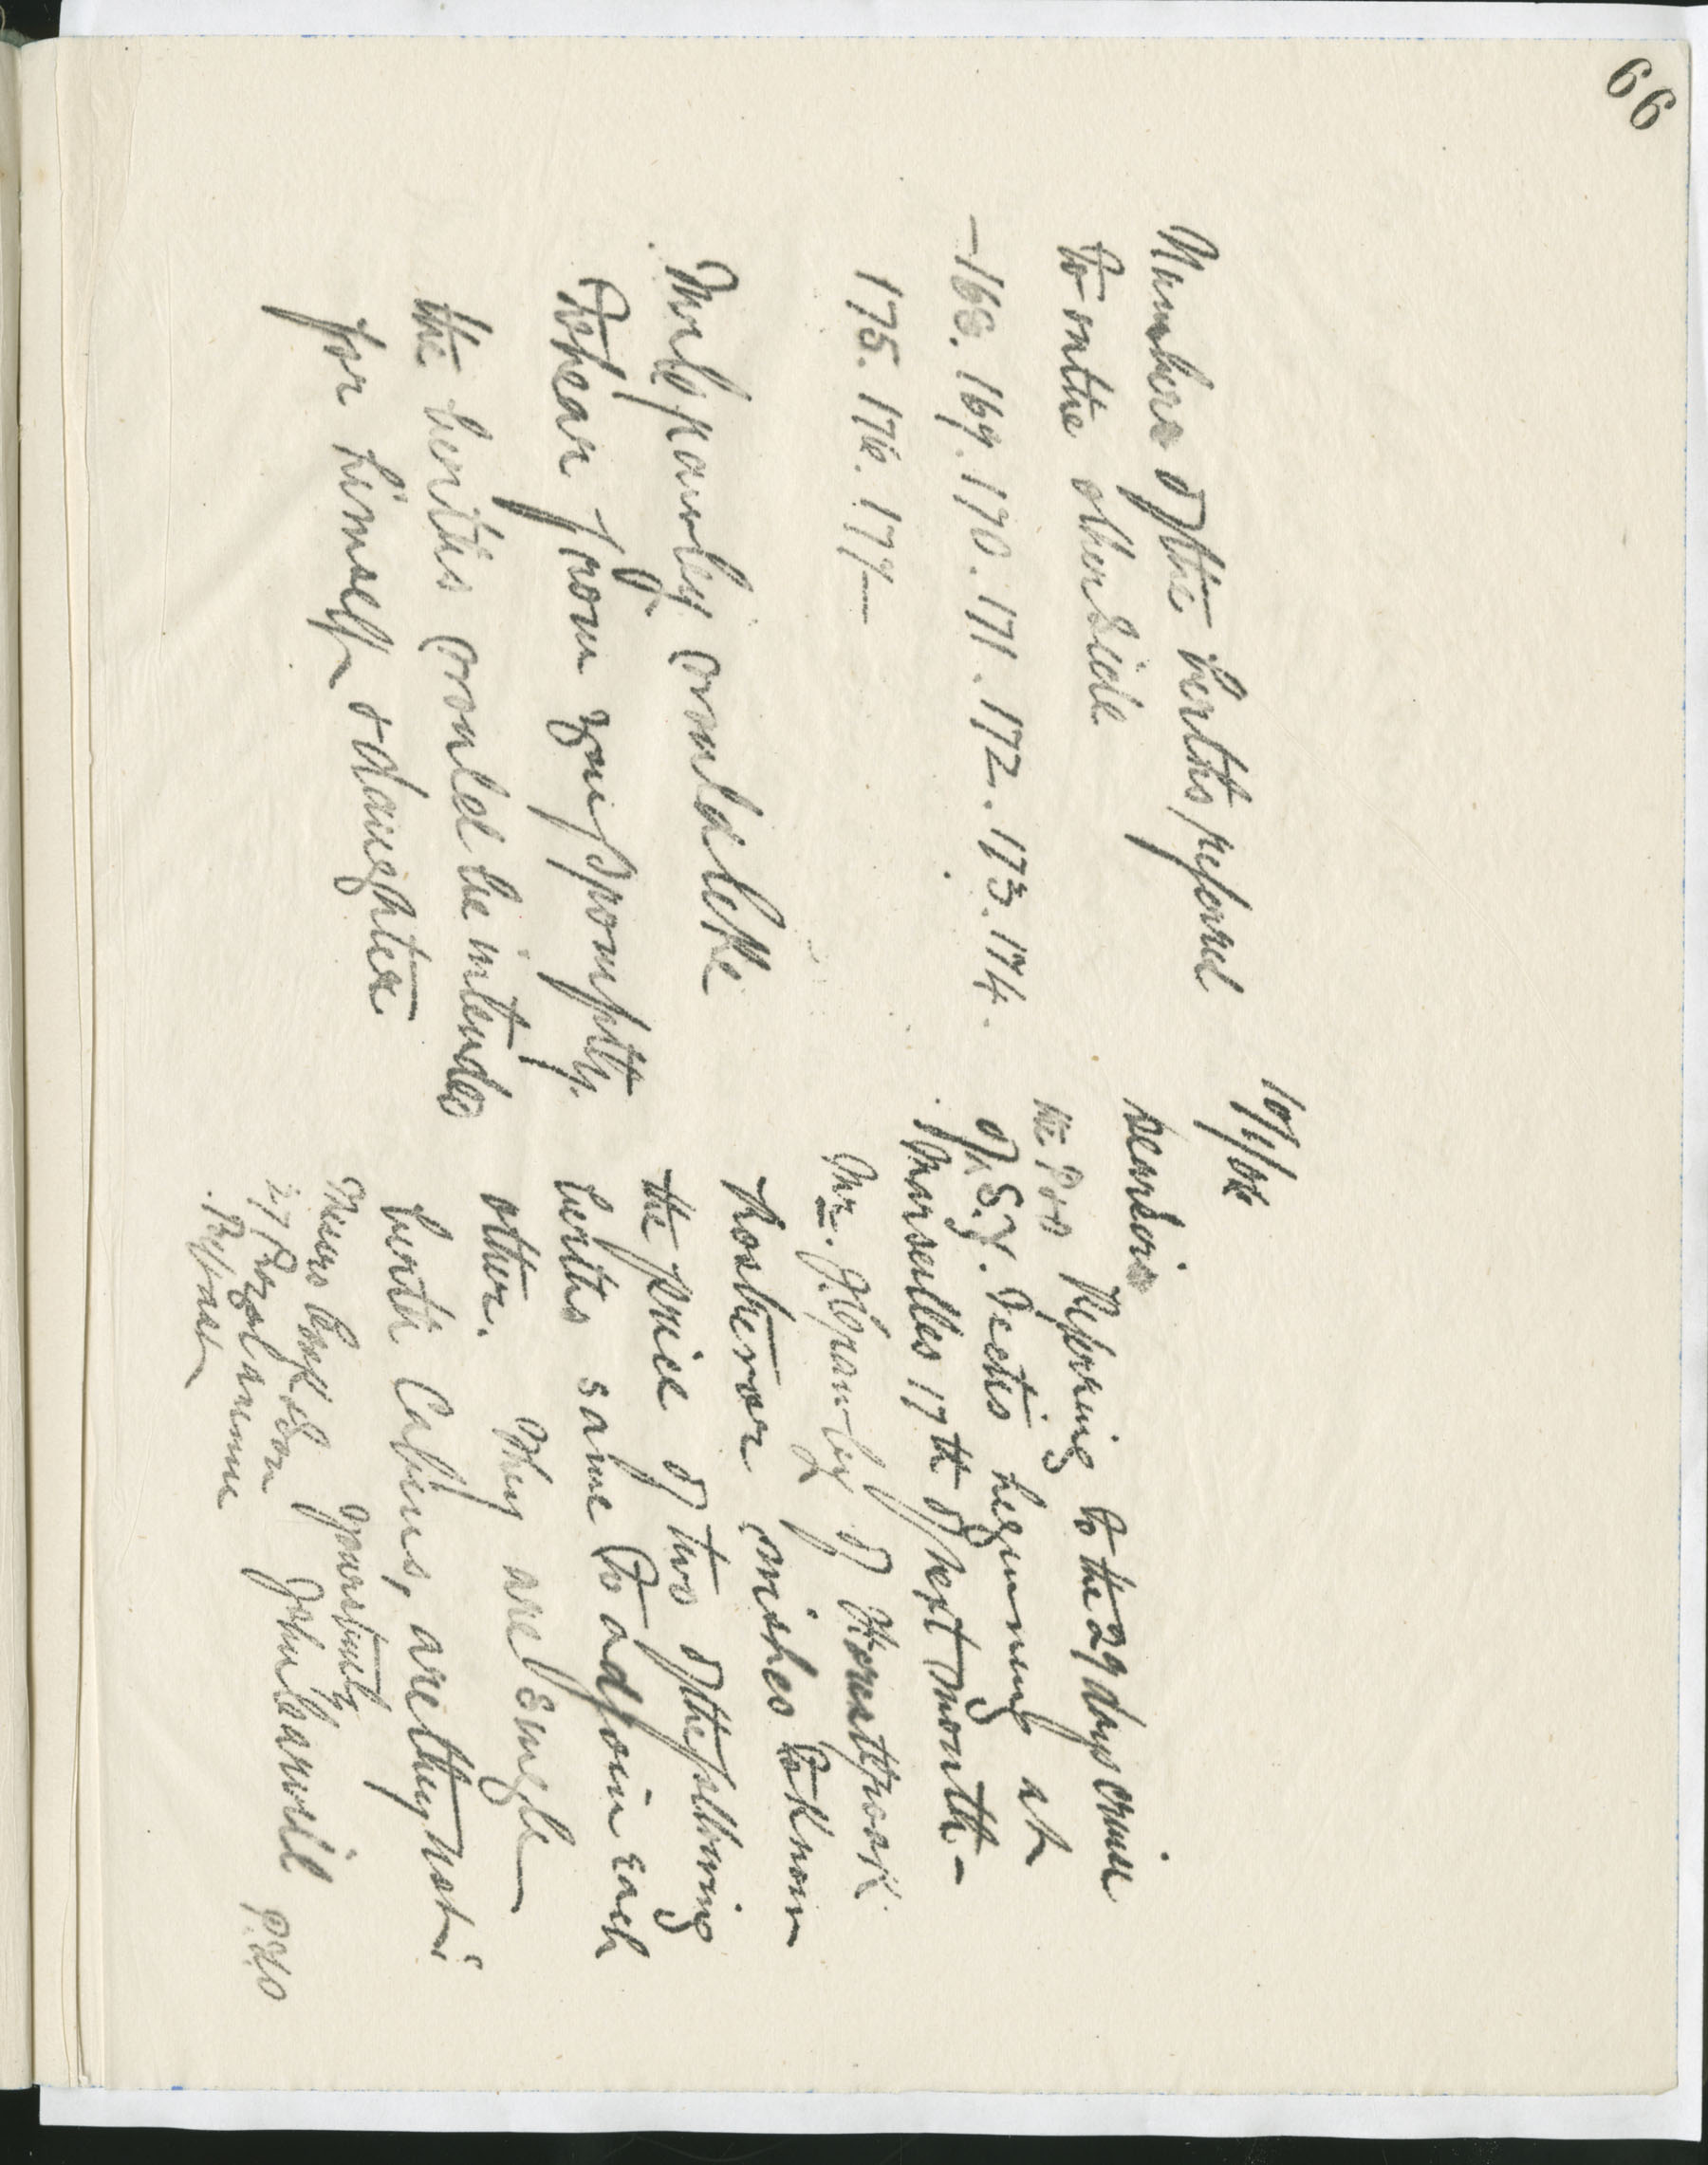 66
Numbers of the berths referred
to on the other side
– 168. 169. 170. 171. 172. 173. 174.
175. 176. 177 –
Mr Crawley would like
to hear from you promptly.
the berths would be intended
for himself & daughter
10/1/06
Dear Sirs
Referring to the 29 days cruise
of the P&O
S.Y. Vectis beginning at
Marseilles 17th of next month –
Mr. Crawley of
wishes to know
the price of two of the following
berths same to adjoin each
other. They are single
berth Cabins, are they not?
Messrs Cook & Son Yours truly
27 Royal Avenue John
Belfast
P.T.O